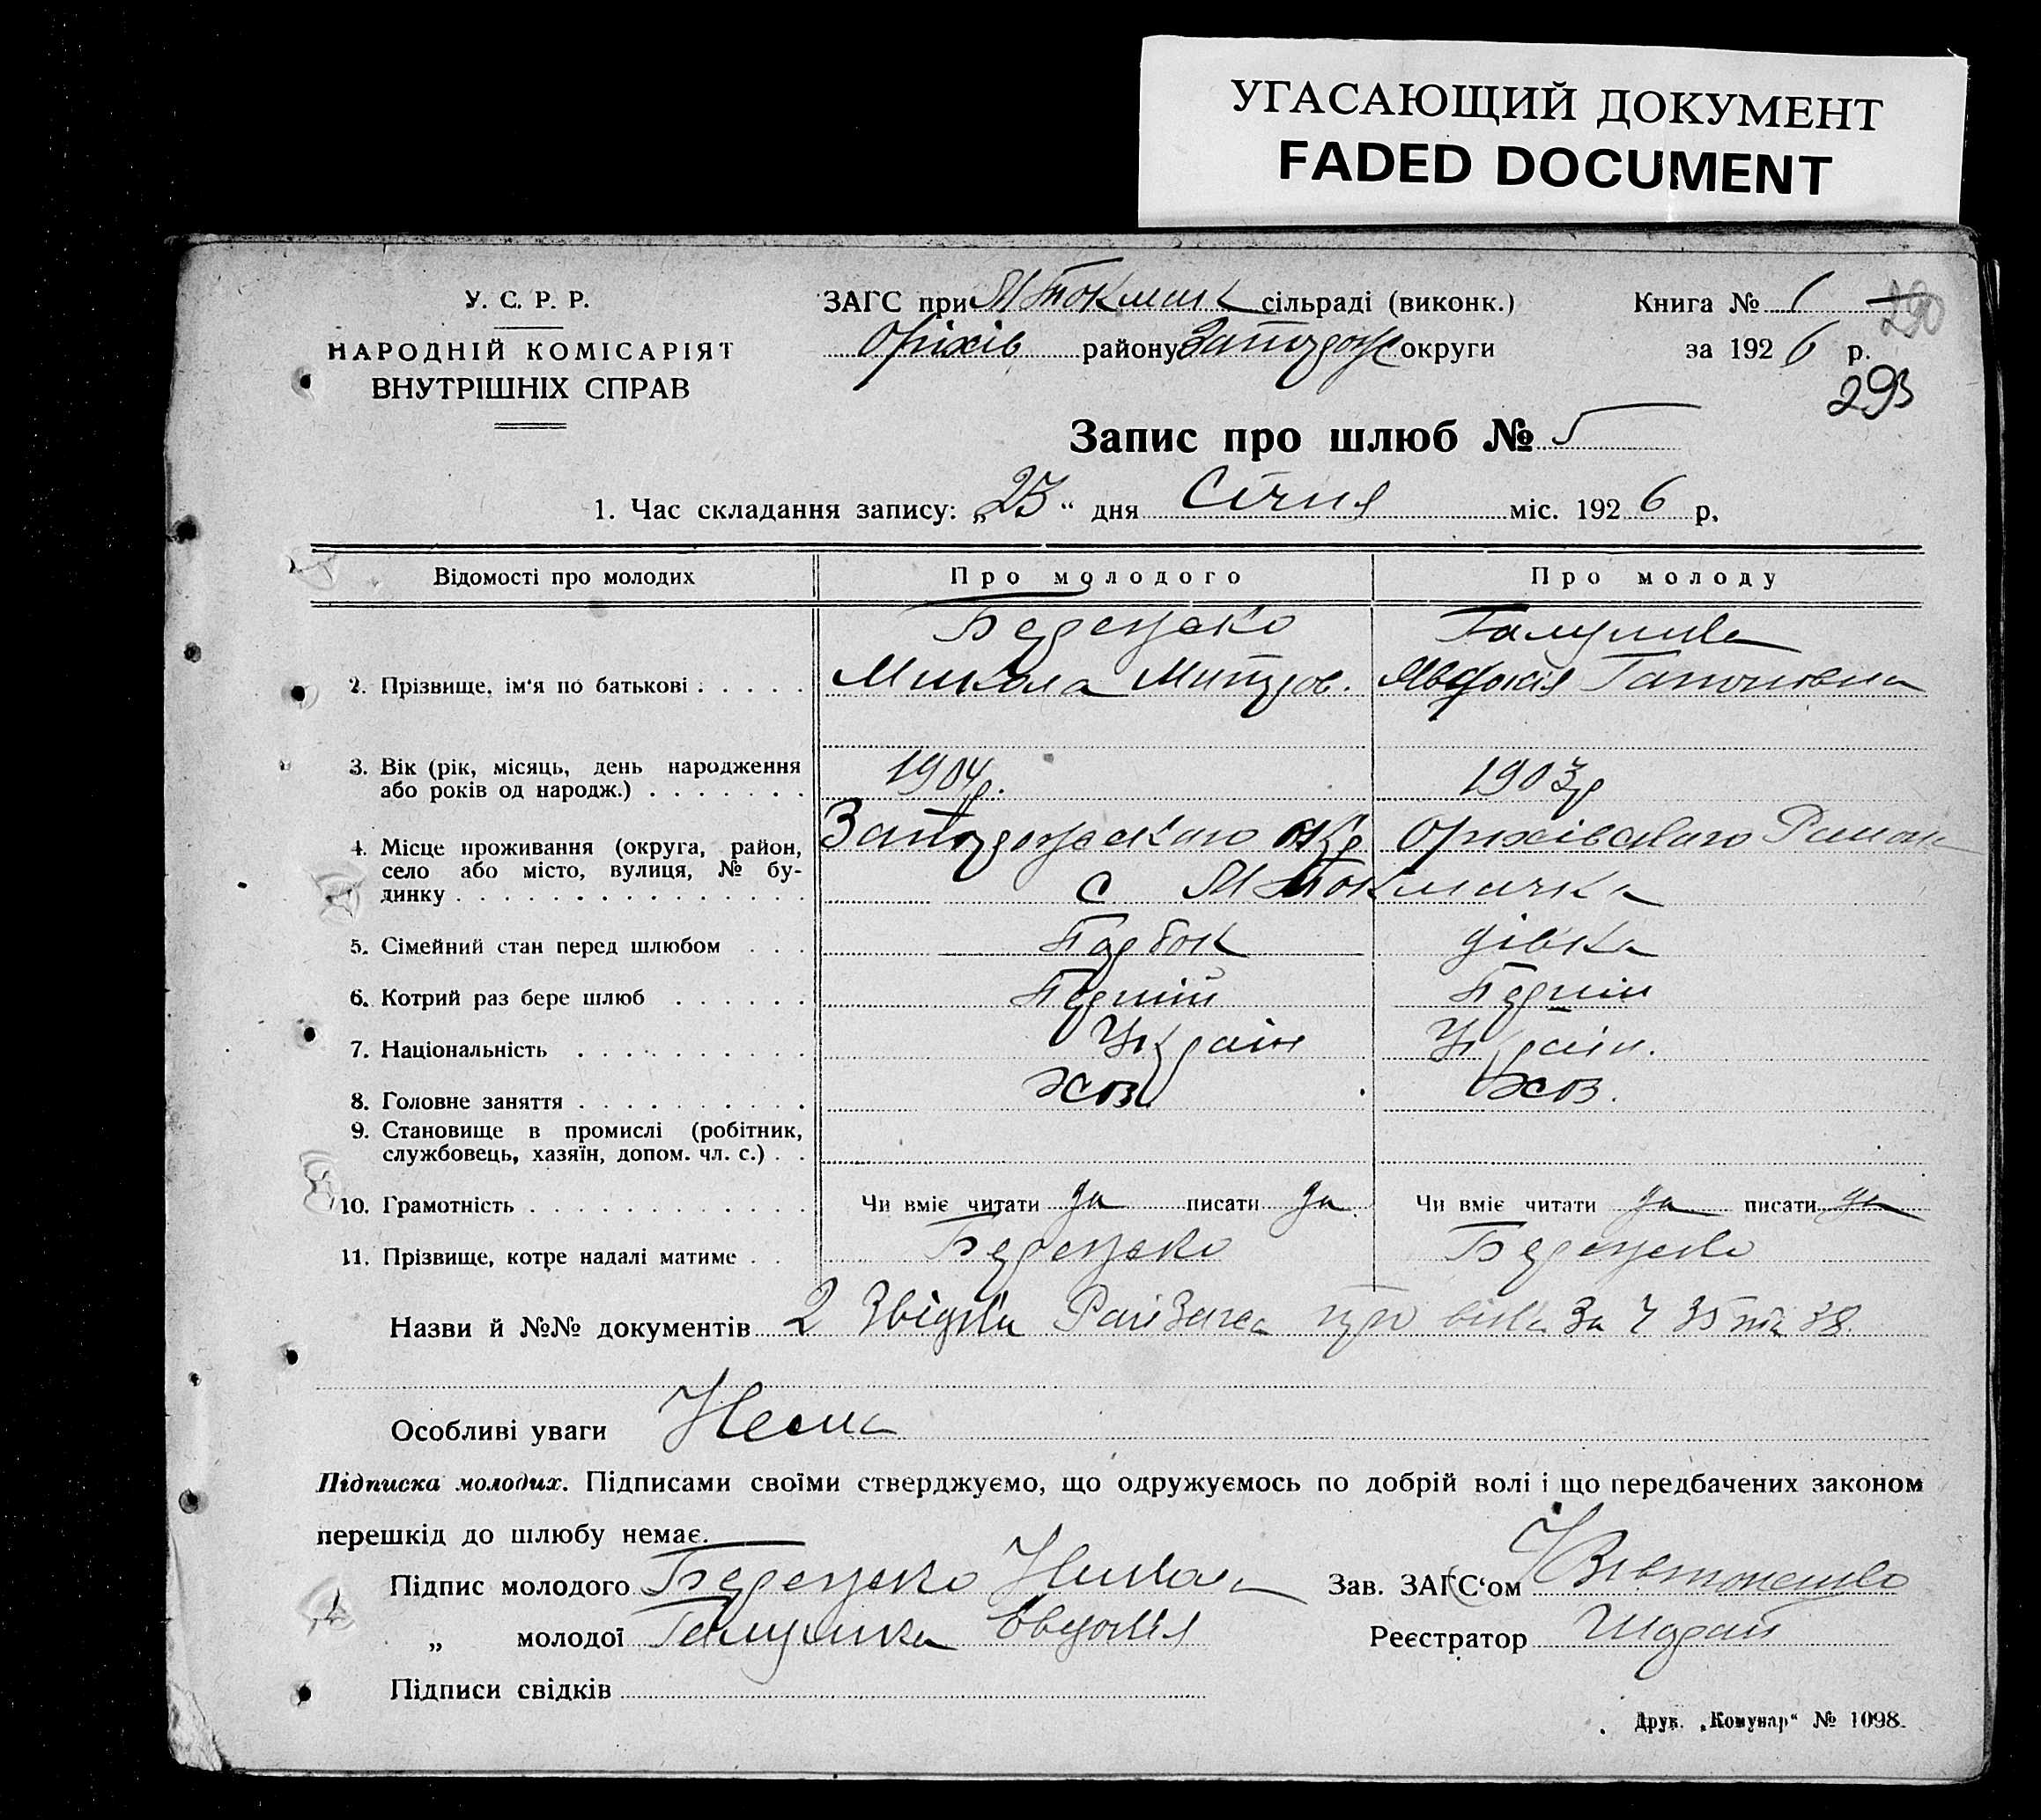 УГАСАЮЩИЙ ДОКУМЕНТ
FADED DOCUMENT
У. С. Р. Р.
НАРОДНІЙ КОМІСАРІЯТ
ВНУТРІШНІХ СПРАВ
ЗАГС при М Токмак сільраді (виконк.)
Оріхів району Запоріж округи
Книга № 1
290
за 1926 р.
293
Запис про шлюб № 5
1. Час складання запису: „23“ дня Січня міс. 1926 р.
Відомості про молодих Про молодого Про молоду
2. Прізвище, ім'я по батькові . . . . .
Микола Митроф. Явдокія Гапоновна
3. Вік (рік, місяць, день народження
або років од народж.) . . . . . . .
1904р. 1903р
4. Місце проживання (округа, район,
село або місто, вулиця, № бу-
динку . . . . . . . . . . . . . . .
Запорожскаго окр Оріхівскаго Район
с М Токмачка
5. Сімейний стан перед шлюбом . . . Парбок дівка
6. Котрий раз бере шлюб . . . . . . Перший Перший
7. Національність . . . . . . . . . . Украін Украін.
8. Головне заняття . . . . . . . . . . хоз хоз.
9. Становище в промислі (робітник,
службовець, хазяїн, допом. чл. с.) . .
10. Грамотність . . . . . . . . . . . . Чи вміє читати да писати да. Чи вміє читати да писати да
11. Прізвище, котре надалі матиме . .
Назви й №№ документів 2 Звідки Райзагса про віка за ч 35 та 38.
Особливі уваги Нема
Підписка молодих. Підписами своїми стверджуємо, що одружуємось по добрій волі і що передбачених законом
перешкід до шлюбу немає.
Підпис молодого Зав. ЗАГС'ом
„ молодої Галушка Евдокія Реєстратор
Підписи свідків
Друк. „Комунар“ № 1098.